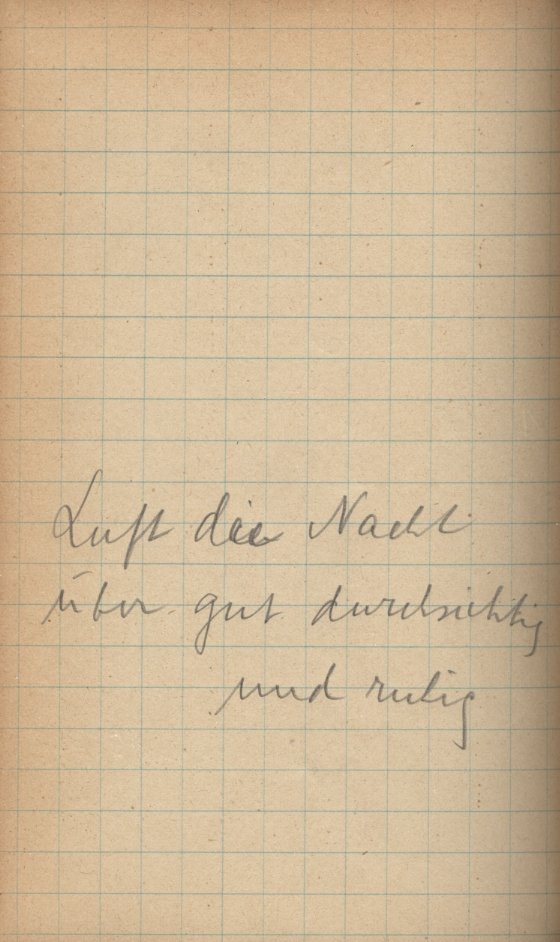 Luft die Nacht
über gut durchsichtig
und ruhig